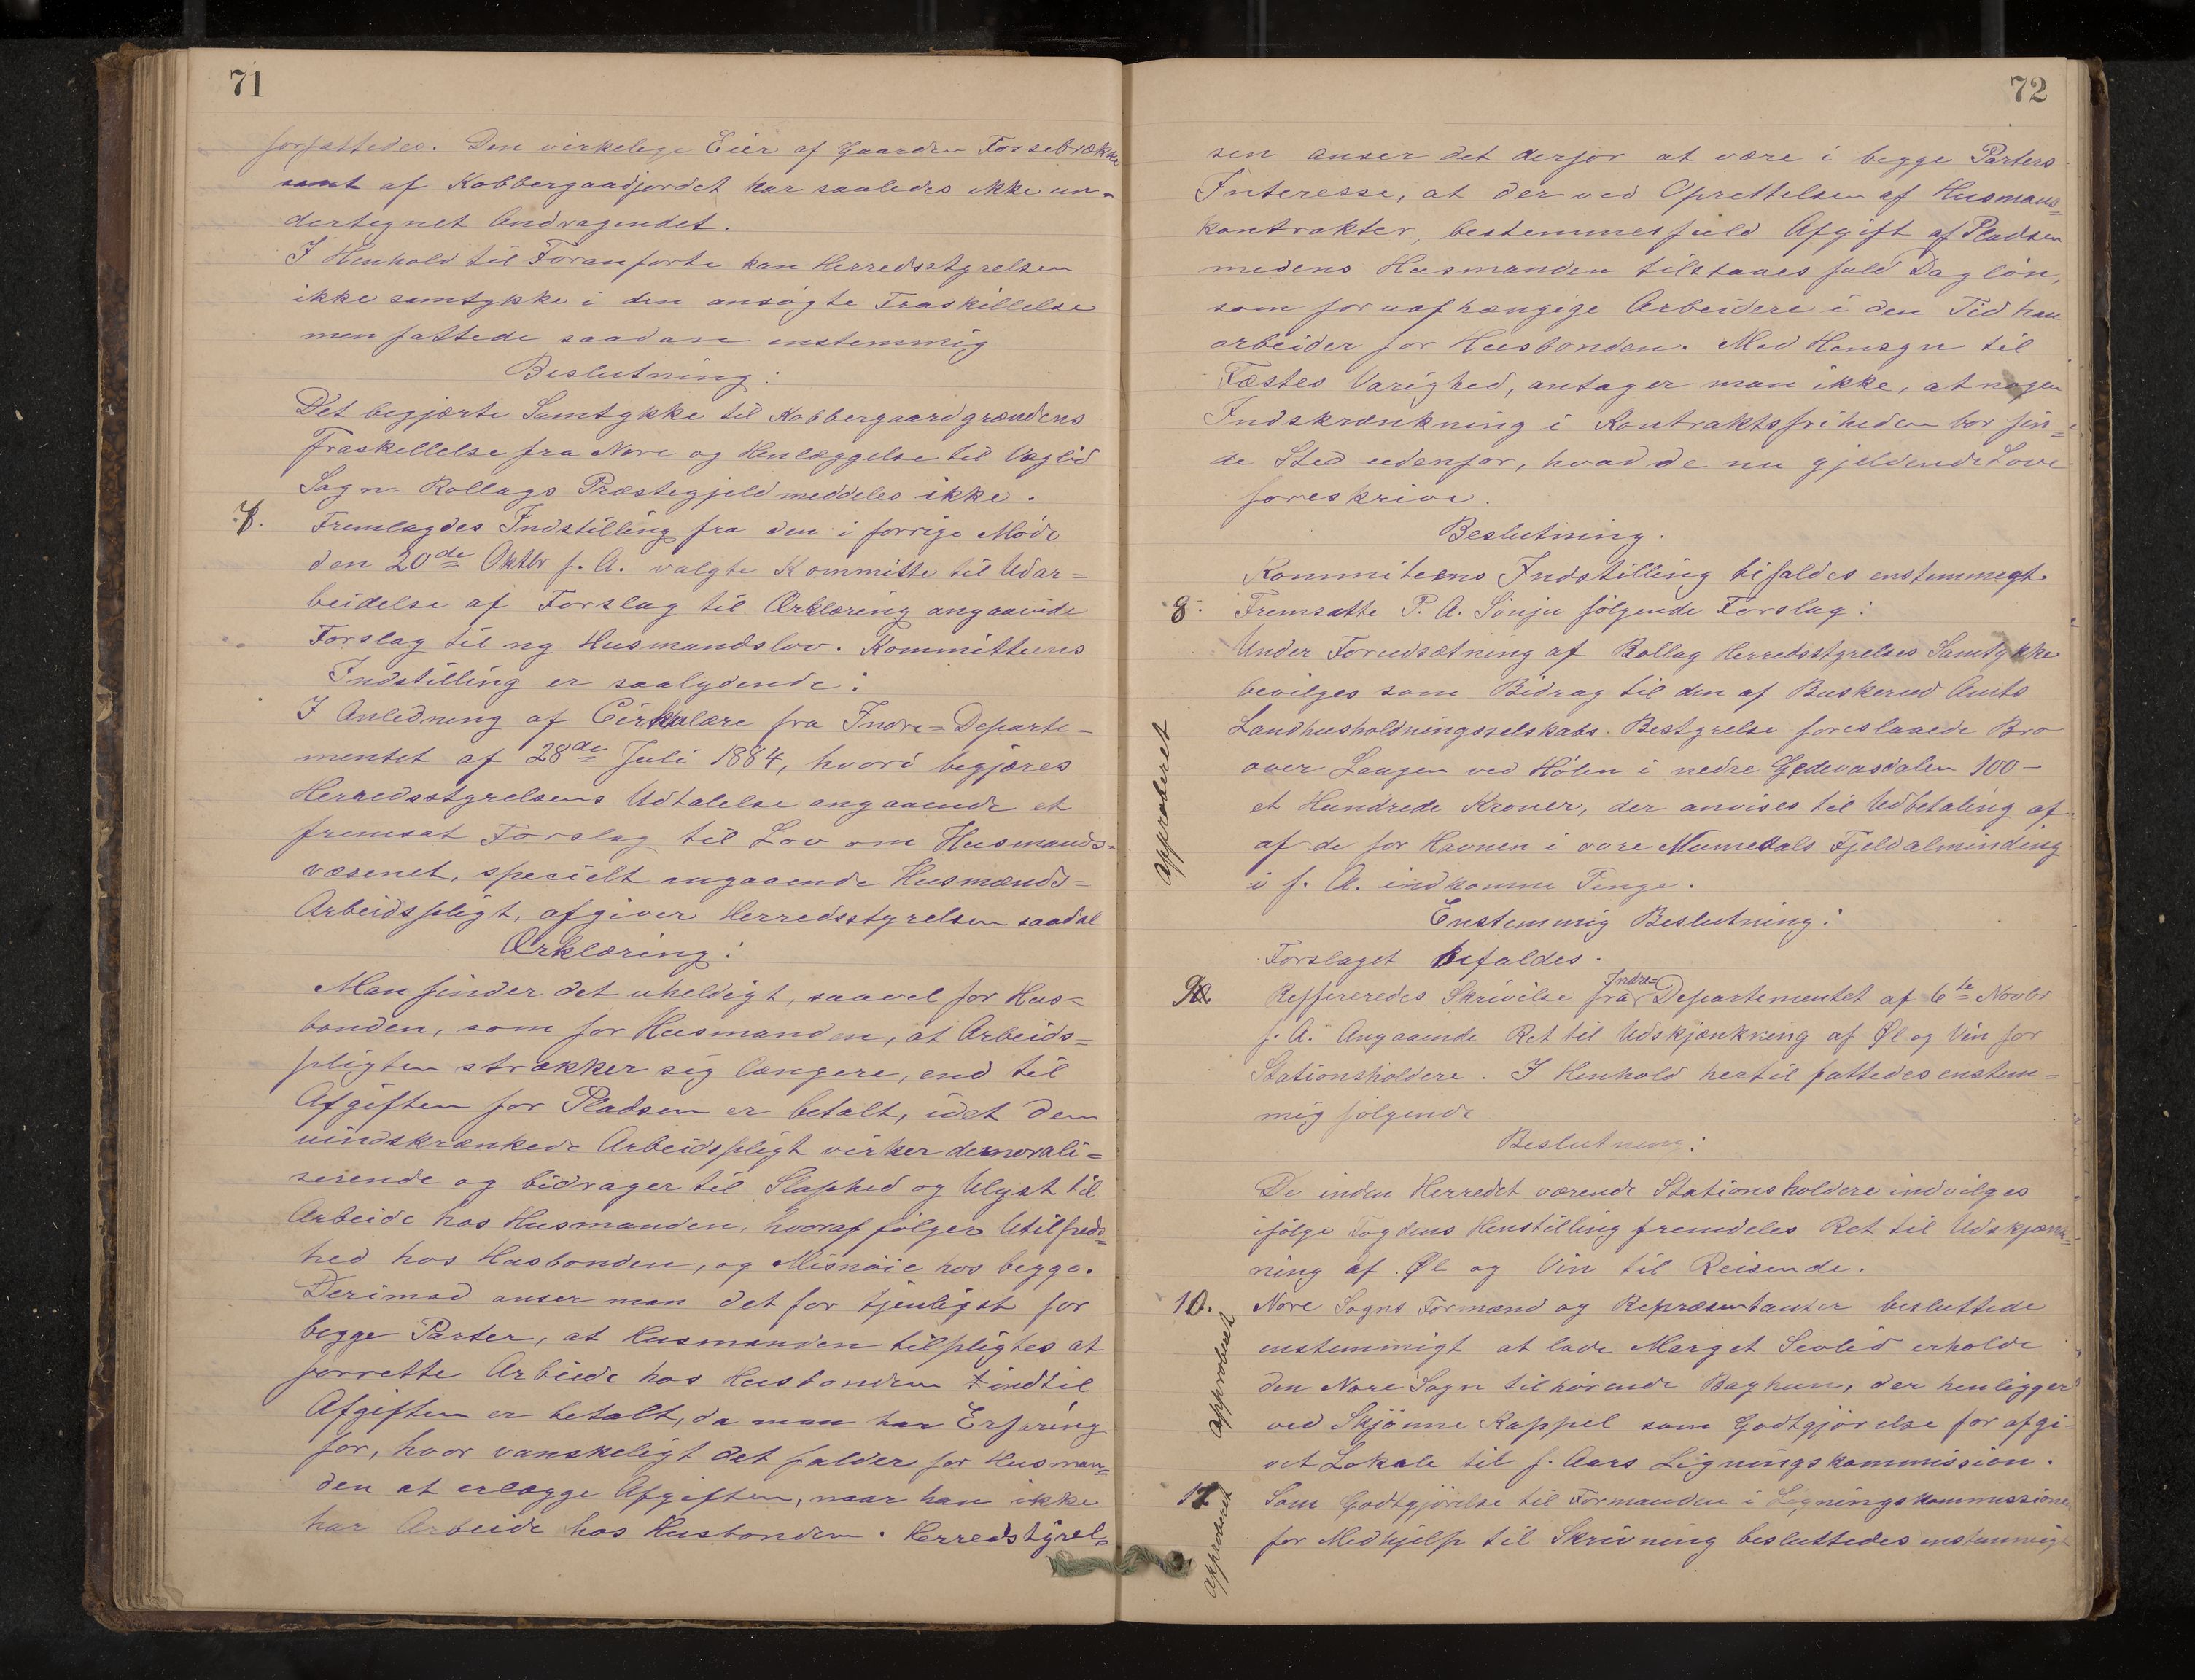 71
forfattedes. Den virkelige Eier af Gaarden Forsebrække
samt af Kobbergaadjordet har saaledes ikke un-
dertegnet Andragendet.
I Henhold til Foranførte kan Herredsstyrelsen
ikke samtykke i den ansøgte Fraskillelse
men fattede saadan enstemmig
Beslutning:
Det begjærte Samtykke til Kobbergaardgrændens
Fraskillelse fra Nore og Henlæggelse til Væglid
Sogn- Rollags Præstegjeld meddeles ikke.
7. Fremlagdes Indstilling fra den i forrige Møde
den 20de Oktbr f. A. valgte Kommitte til Udar=
beidelse af Forslag til Erklæring angaaende
Forslag til ny Husmandslov. Kommitteens
Indstilling er saalydende:
I Anledning af Cirkulære fra Indre=Departe-
mentet af 28de Juli 1884, hvori begjæres
Herredsstyrelsens Udtalelse angaaende et
fremsat Forslag til Lov om Husmands=
væsenet, specielt angaaende Husmænds=
Arbeidspligt, afgiver Herredsstyrelsen saadal
Erklæring:
Man finder det uheldigt, saavel for Hus=
bonden, som for Husmanden, at Arbeids=
pligten strækker sig længere, end til
Afgiften for Pladsen er betalt, idet den
uindskrænkede Arbeidspligt virker demorali=
serende og bidrager til Slaphed og Ulyst til
Arbeide hos Husmanden, hvoraf følger Utilfreds=
hed hos Husbonden, og Misnøie hos begge.
Derimod anser man det for tjenligst for
begge Parter, at Husmanden tilpligtes at
forrette Arbeide hos Husbonden indtil
Afgiften er betalt, da man har Erfaring
for, hvor vanskeligt det falder for Husman=
den at erlægge Afgiften, naar han ikke
har Arbeide hos Husbonden. Herredstyrel=
72
sen anser det derfor at være i begge Parters
Interesse, at der ved Oprettelsen af Husmans=
kontrakter, bestemmes fuld Afgift af Pladsen
medens Husmanden tilstaaes fuld Dagløn,
som for uafhængige Arbeidere i den Tid han
arbeider for Husbonden. Med Hensyn til
Fæstes Varighed, antager man ikke, at nogen
Indskrænkning i Kontraktsfriheden bør fin=
de Sted udenfor, hvad de nu gjeldende Love
foreskrive.
Beslutning.
Kommiteens Indstilling bifaldes enstemmegt.
8. Fremsatte P. A. Sønju følgende Forslag:
Under Forudsætning af Rollag Herredsstyrelses Samtykke
bevilges som Bidrag til den af Buskerud Amts
Landhusholdningsselskabs Bestyrelse foreslaaede Bro
over Laagen ved Hølen i nedre Gedevasdalen 100-
et Hundrede Kroner, der anvises til Udbetaling af
af de for Havnen i øvre Numedals Fjeldalminding
i f. A. indkomne Penge.
Enstemmig Beslutning:
Forslaget bifaldes.
approberet
9. Reffereredes Skrivelse fra Indre- Departementet af 6te Novbr
f. A. Angaaende Ret til Udskjænkning af Øl og Vin for
Stationsholdere. I Henhold hertil fattedes enstem=
mig følgende
Beslutning:
De inden Herredet værende Stationsholdere indvilges
ifølge Fogdens Henstilling fremdeles Ret til Udskjænk=
ning af Øl og Vin til Reisende.
10. Nore Sogns Formænd og Repræsentanter besluttede
enstemmigt at lade Marget Sevlid erholde
den Nore Sogn tilhørende Baghun, der henligger
ved Skjønne Kappel som Godtgjørelse for afgi=
vet Lokale til f. Aars Ligningskommission.
approberet
11. Som Godtgjørelse til Formanden i Ligningskommissionen
for Medhjelp til Skrivning besluttedes enstemmigt
approberet